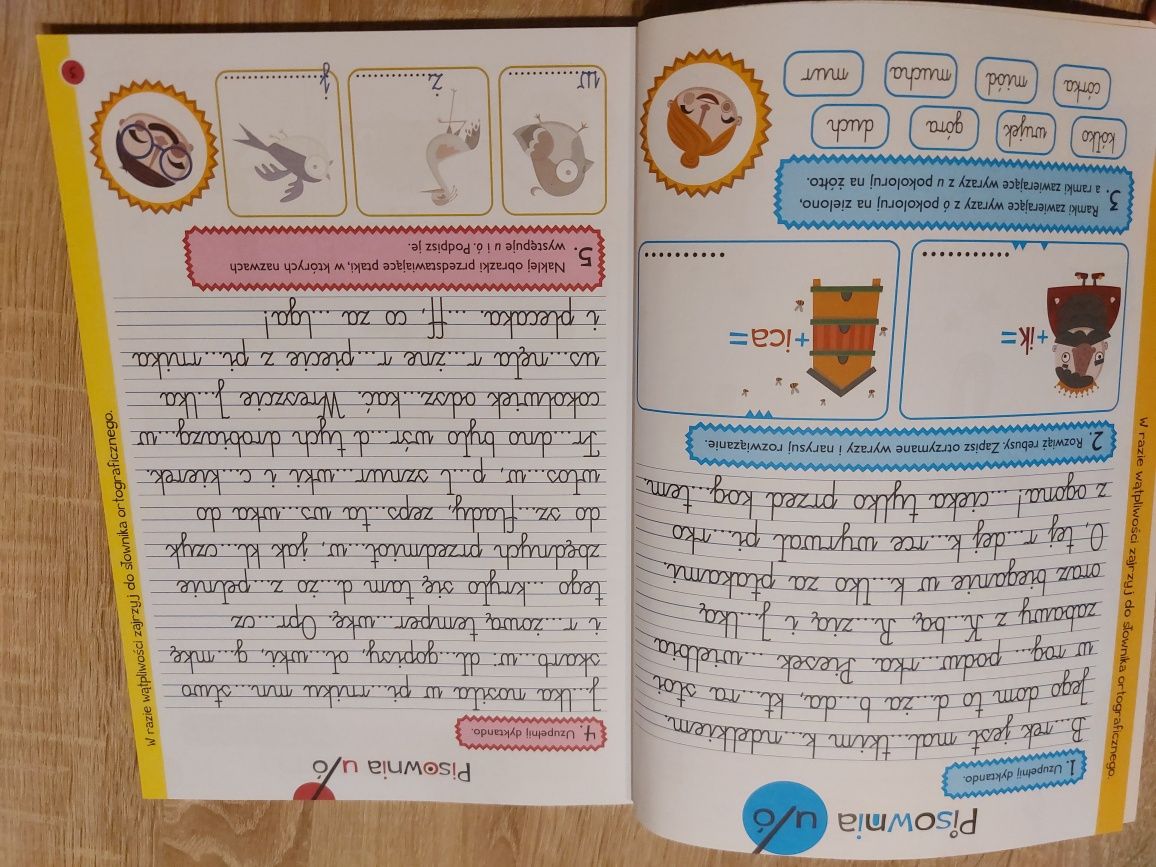 Pisownia u/ó
1. Uzupełnij dyktando.
B...rek jest mal...tkim k...ndelkiem.
Jego dom to d...ża b...da, kt...ra stoi
w rog... podw...rka. Piesek ...wielbia
zabawy z K...bą, R...zią i J...lką
oraz bieganie w k...łko za ptakami.
O, tej r...dej k...rce wyrwał pi...rko
z ogona! ...cieka tylko przed kog...tem.
2. Rozwiąż rebusy. Zapisz otrzymane wyrazy i narysuj rozwiązanie.
+ik=
+ica=
3. Ramki zawierające wyrazy z ó pokoloruj na zielono,
a ramki zawierające wyrazy z u pokoloruj na żółto.
kółko wujek góra duch
córka miód mucha mur
W razie wątpliwości zajrzyj do słownika ortograficznego.
Pisownia u/ó
4. Uzupełnij dyktando.
J...lka nosiła w pi...rniku mn...stwo
skarb...w: dł...gopisy, oł...wki, g...mkę
i r...żową temper...wkę. Opr...cz
tego ...kryło się tam d...żo z...pełnie
zbędnych przedmiot...w, jak kl...czyk
do sz...flady, zeps...ta ws...wka do
włos...w, p...ł sznur...wki i c...kierek.
Tr...dno było wśr...d tych drobiazg...w
cokolwiek odsz...kać. Wreszcie J...lka
us...nęła r...żne r...piecie z pi...rnika
i plecaka. ...ff, co za ...lga!
5. Naklej obrazki przedstawiające ptaki, w których nazwach
występuje u i ó. Podpisz je.
w ż j
W razie wątpliwości zajrzyj do słownika ortograficznego.
5